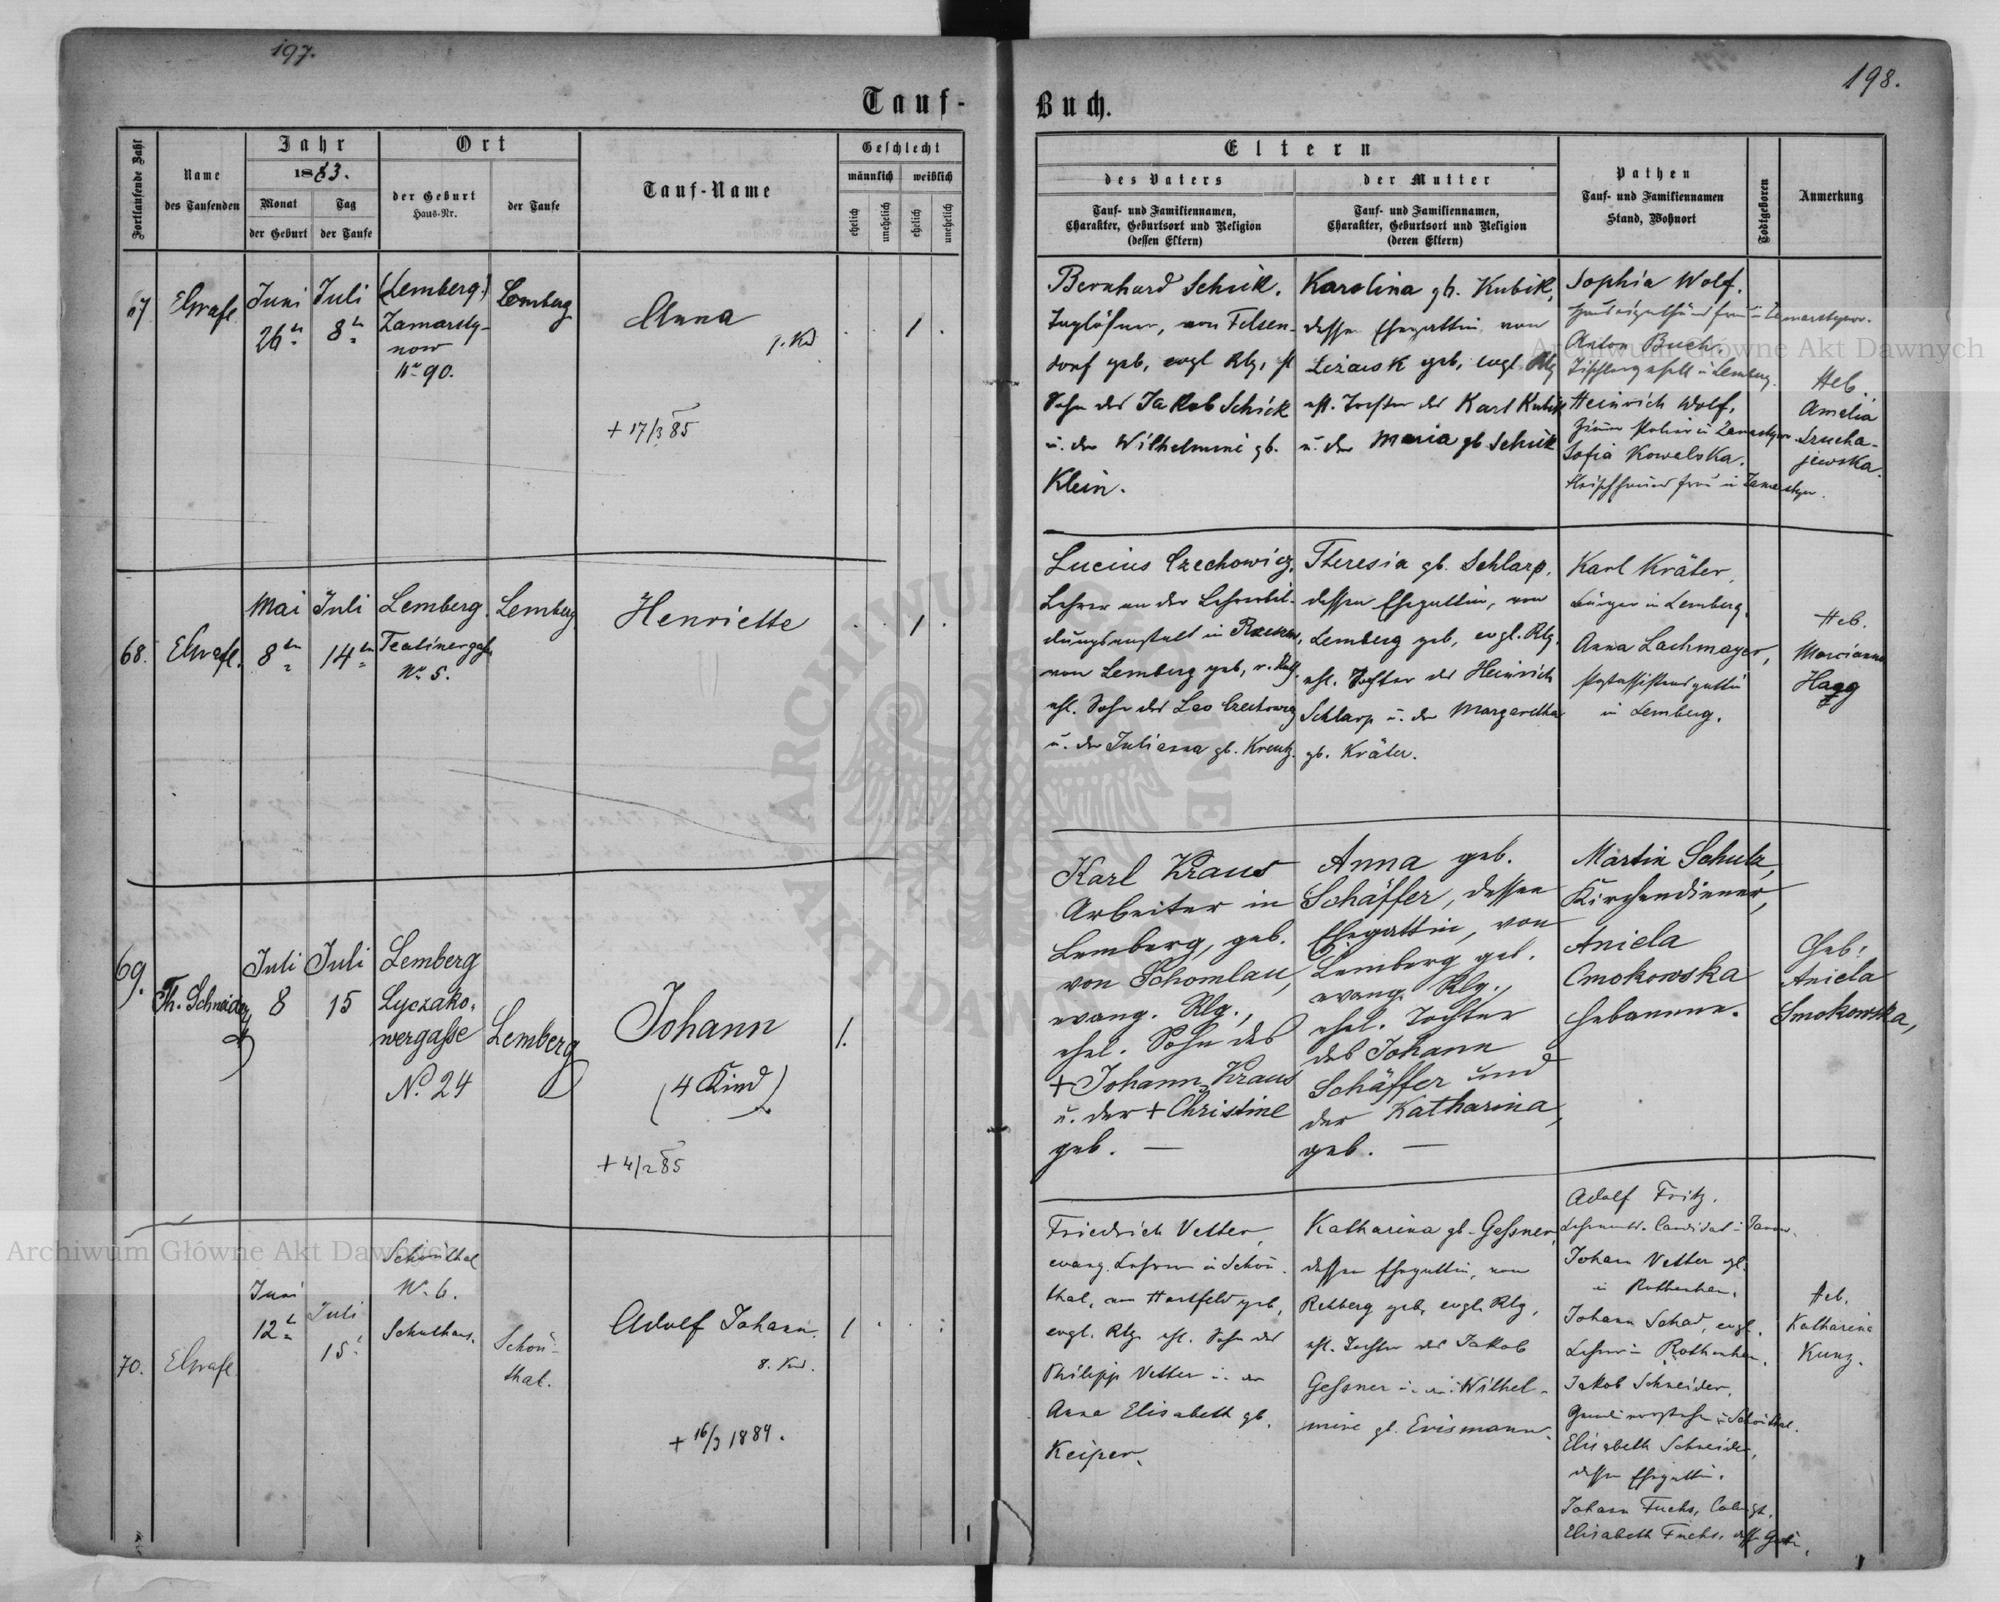 197.
198.
Tauf-
Buch.
Fortlaufende Zahl
Name
des Taufenden
Jahr
1883.
Monat
der Geburt
Tag
der Taufe
Ort
der Geburt
Haus-Nr.
der Taufe
Tauf-Name
Geschlecht
männlich
weiblich
ehelich
unehelich
ehelich
unehelich
Eltern
des Vaters
Tauf- und Familiennamen,
Charakter, Geburtsort und Religion
(dessen Eltern)
der Mutter
Tauf- und Familiennamen,
Charakter, Geburtsort und Religion
(deren Eltern)
Pathen
Tauf- und Familiennamen
Stand, Wohnort
Todtgeboren
Anmerkung
67
Juni
26
Juli
8
(Lemberg)
Zamarsty-
now
Nr 90.
Lemberg
Anna
+ 17/3 85
1
Bernhard Schick,
Taglöhner, von Felsen-
dorf geb, evgl Rlg,
Sohn des Jakob Schick
u. der Wilhelmine gb.
Klein.
Karolina gb. Kubik,
dessen Ehegattin von
geb, evgl. Rlg
ehl. Tochter des Karl Kubik
u. der Maria gb Schick
Sophia Wolf.
Anton Buch.
Tischlergesell in Lemberg.
Heinrich Wolf,
Sofia Kowalska.
Heb.
Amelia
68.
Mai
8
Juli
14
Lemberg.
Teatinergasse
Nr. 5.
Lemberg
Henriette
1
Lucius Czechowicz,
Lehrer an der Lehrerbil-
dungsanstalt in
von Lemberg geb, r.
ehl. Sohn des Leo Czechowicz
u. der Juliana gb. Kreutz.
Theresia gb. Schlarp,
dessen Ehegattin, von
Lemberg geb, evgl. Rlg.
ehl. Tochter des Heinrich
Schlarp u. der Margaretha
gb. Kräter.
Karl Kräter,
Bürger in Lemberg.
Anna Lachmayer,
Postassistensgattin
in Lemberg.
Heb.
Marcianna
Hagg
69.
Th. Schneider
Juli
8
Juli
15
Lemberg
Lyczako-
wergaße
No. 24
Lemberg
Johann
(4 Kind)
+ 4/2 85
1.
Karl Kraus
Arbeiter in
Lemberg, geb.
von Schomlau,
evang. Rlg.,
ehel. Sohn des
+ Johann Kraus
u. der + Christine
geb. —
Anna geb.
Schäffer, dessen
Ehegattin, von
Lemberg geb.
evang. Rlg.,
ehel. Tochter
des Johann
Schäffer und
der Katharina,
geb. —
Martin Schulz,
Kirchendiener,
Aniela
Smokowska
Hebamme.
Heb:
Aniela
Smokowska,
70.
Juni
12
Juli
15
Schönthal
Nr. 6.
Schulhaus.
Schön-
thal.
Adolf Johann.
8. Knd.
+ 16/3 1884.
1
Friedrich Vetter,
evang. Lehrer in Schön-
thal, von Hartfeld geb,
evgl. Rlg. ehl. Sohn des
Philipp Vetter u. der
Anna Elisabeth gb.
Keiper.
Katharina gb. Geßner,
dessen Ehegattin, von
Rehberg geb, evgl. Rlg,
ehl. Tochter des Jakob
Geßner u. der Wilhel-
mine gb. Erismann.
Adolf Fritz,
Johann Vetter
in Rottenhan,
Johann Schad, evgl.
Lehrer in Rottenhan.
Jakob Schneider,
Elisabeth Schneider,
dessen Ehegattin.
Johann Fuchs,
Elisabeth Fuchs,
Heb.
Katharina
Kunz.
Archiwum Główne Akt Dawnych
Archiwum Główne Akt Dawnych
ARCHIWUM GŁÓWNE AKT DAWNYCH